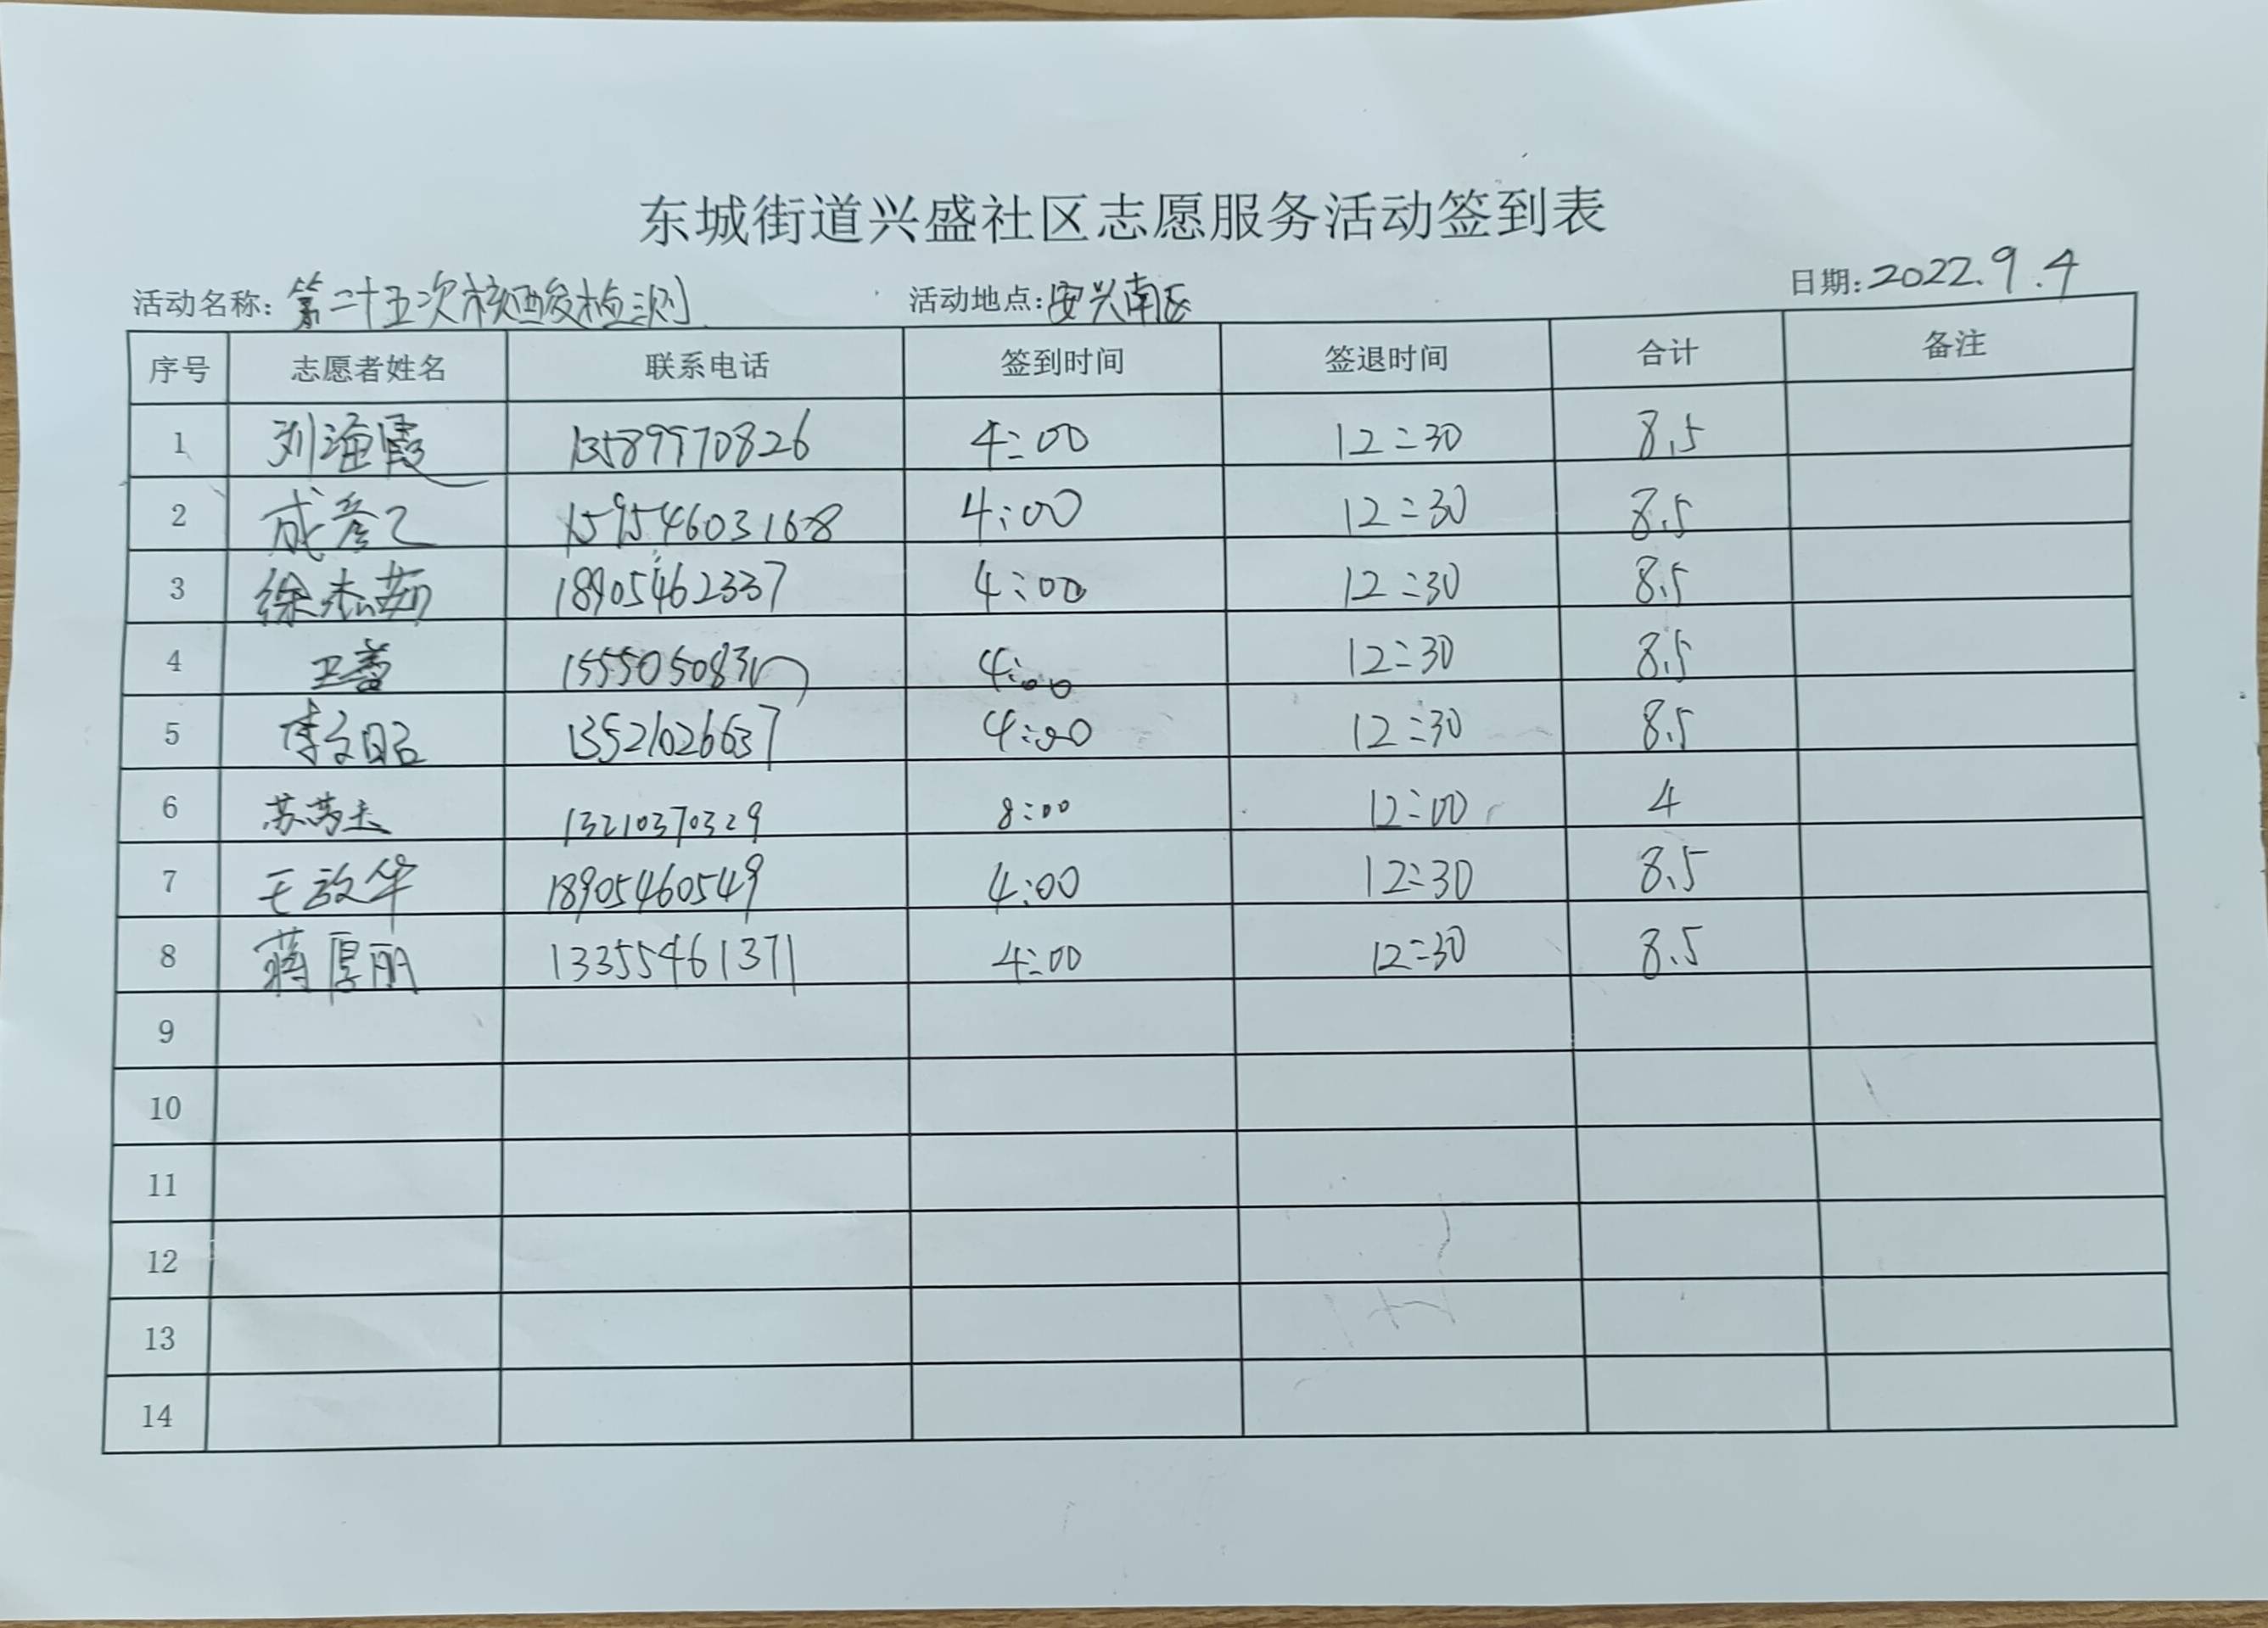 东城街道兴盛社区志愿服务活动签到表
活动名称: 第二十五次核酸检测 活动地点: 安兴南区 日期: 2022.9.4
序号 志愿者姓名 联系电话 签到时间 签退时间 合计 备注
1 刘海霞 13589970826 4:00 12:30 8.5
2 成彦乙 15954603168 4:00 12:30 8.5
3 徐杰茹 18905462337 4:00 12:30 8.5
4 4:00 12:30 8.5
5 李文昭 13521026637 4:00 12:30 8.5
6 苏 13210370329 8:00 12:00 4
7 王政华 18905460549 4:00 12:30 8.5
8 蒋厚丽 13355461371 4:00 12:30 8.5
9
10
11
12
13
14